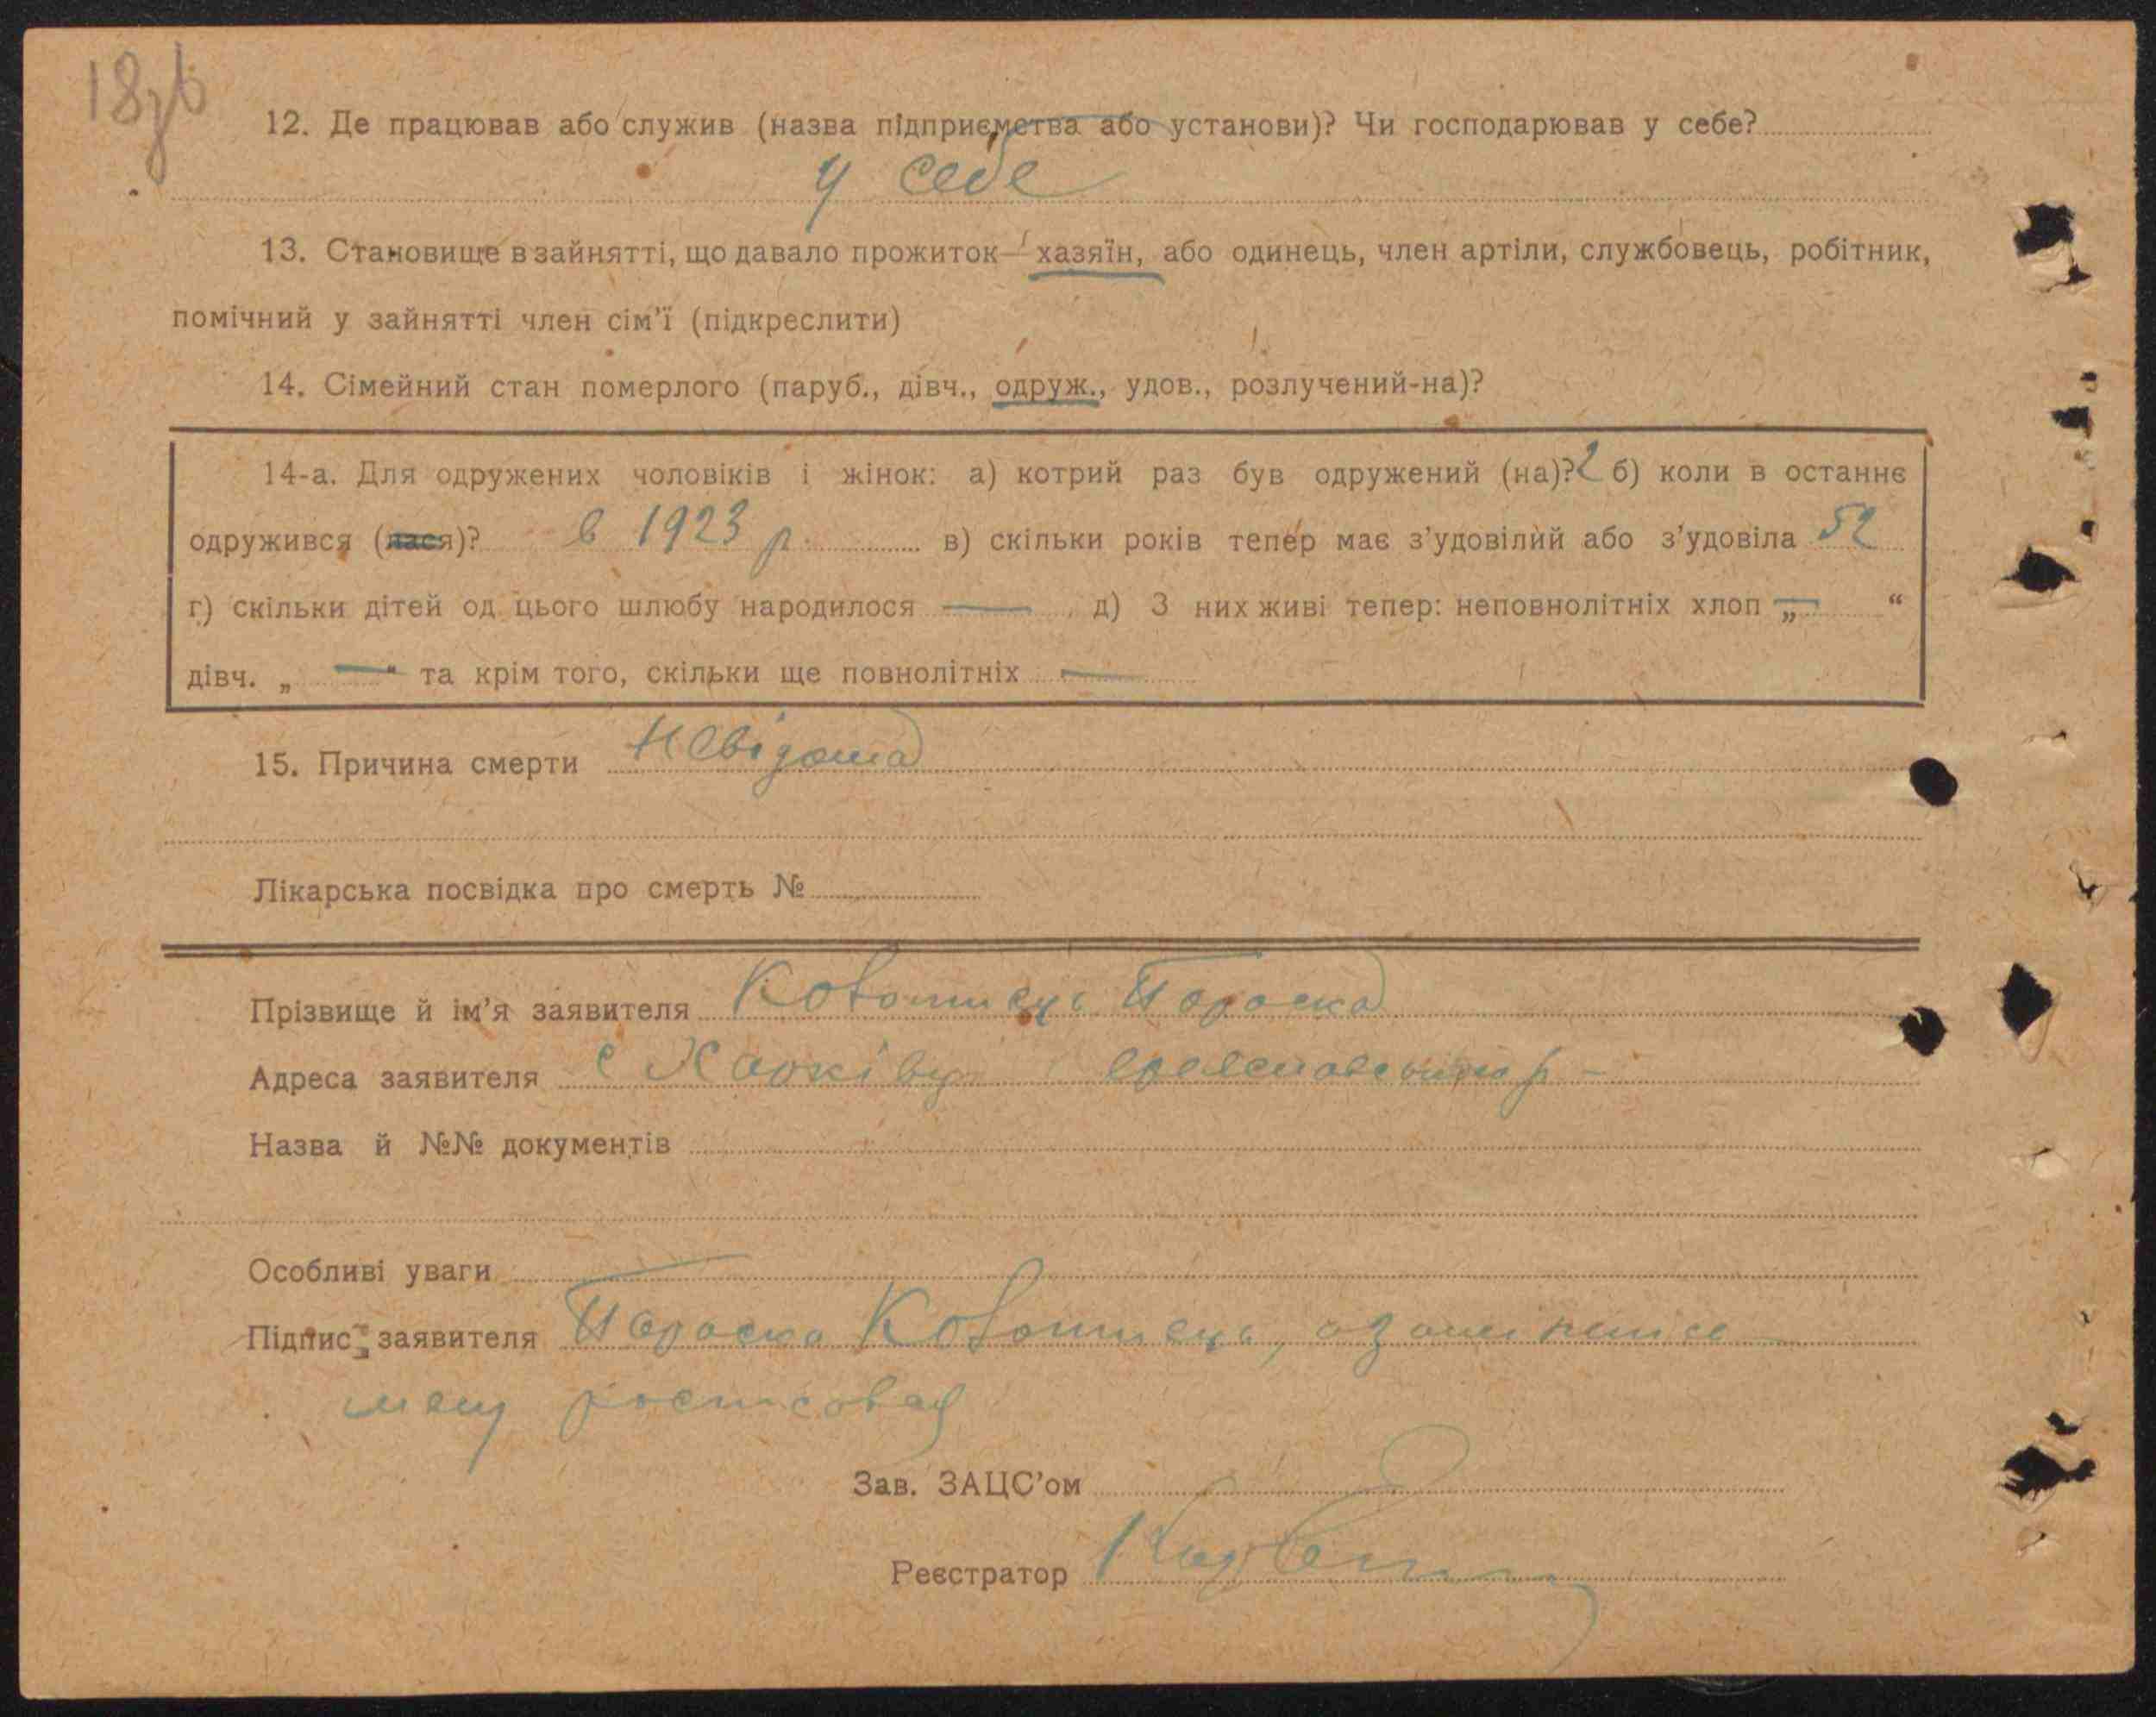 18зв
12. Де працював або служив (назва підприємства або установи)? Чи господарював у себе?
у себе
13. Становище в зайнятті, що давало прожиток — хазяїн, або одинець, член артіли, службовець, робітник,
помічний у зайнятті член сім'ї (підкреслити)
14. Сімейний стан померлого (паруб., дівч., одруж., удов., розлучений-на)?
14-а. Для одружених чоловіків і жінок: а) котрий раз був одружений (на)? 2 б) коли в останнє
одружився (лася)? в 1923 р. в) скільки років тепер має з'удовілий або з'удовіла 52
г) скільки дітей од цього шлюбу народилося — д) З них живі тепер: неповнолітніх хлоп „ — “
дівч. „ — “ та крім того, скільки ще повнолітніх —
15. Причина смерти Невідома
Лікарська посвідка про смерть №
Прізвище й ім'я заявителя Коломиець Параска
Адреса заявителя с Харківці
Назва й №№ документів
Особливі уваги
Підпис заявителя Параска Коломиець, а за
Зав. ЗАЦС'ом
Реєстратор